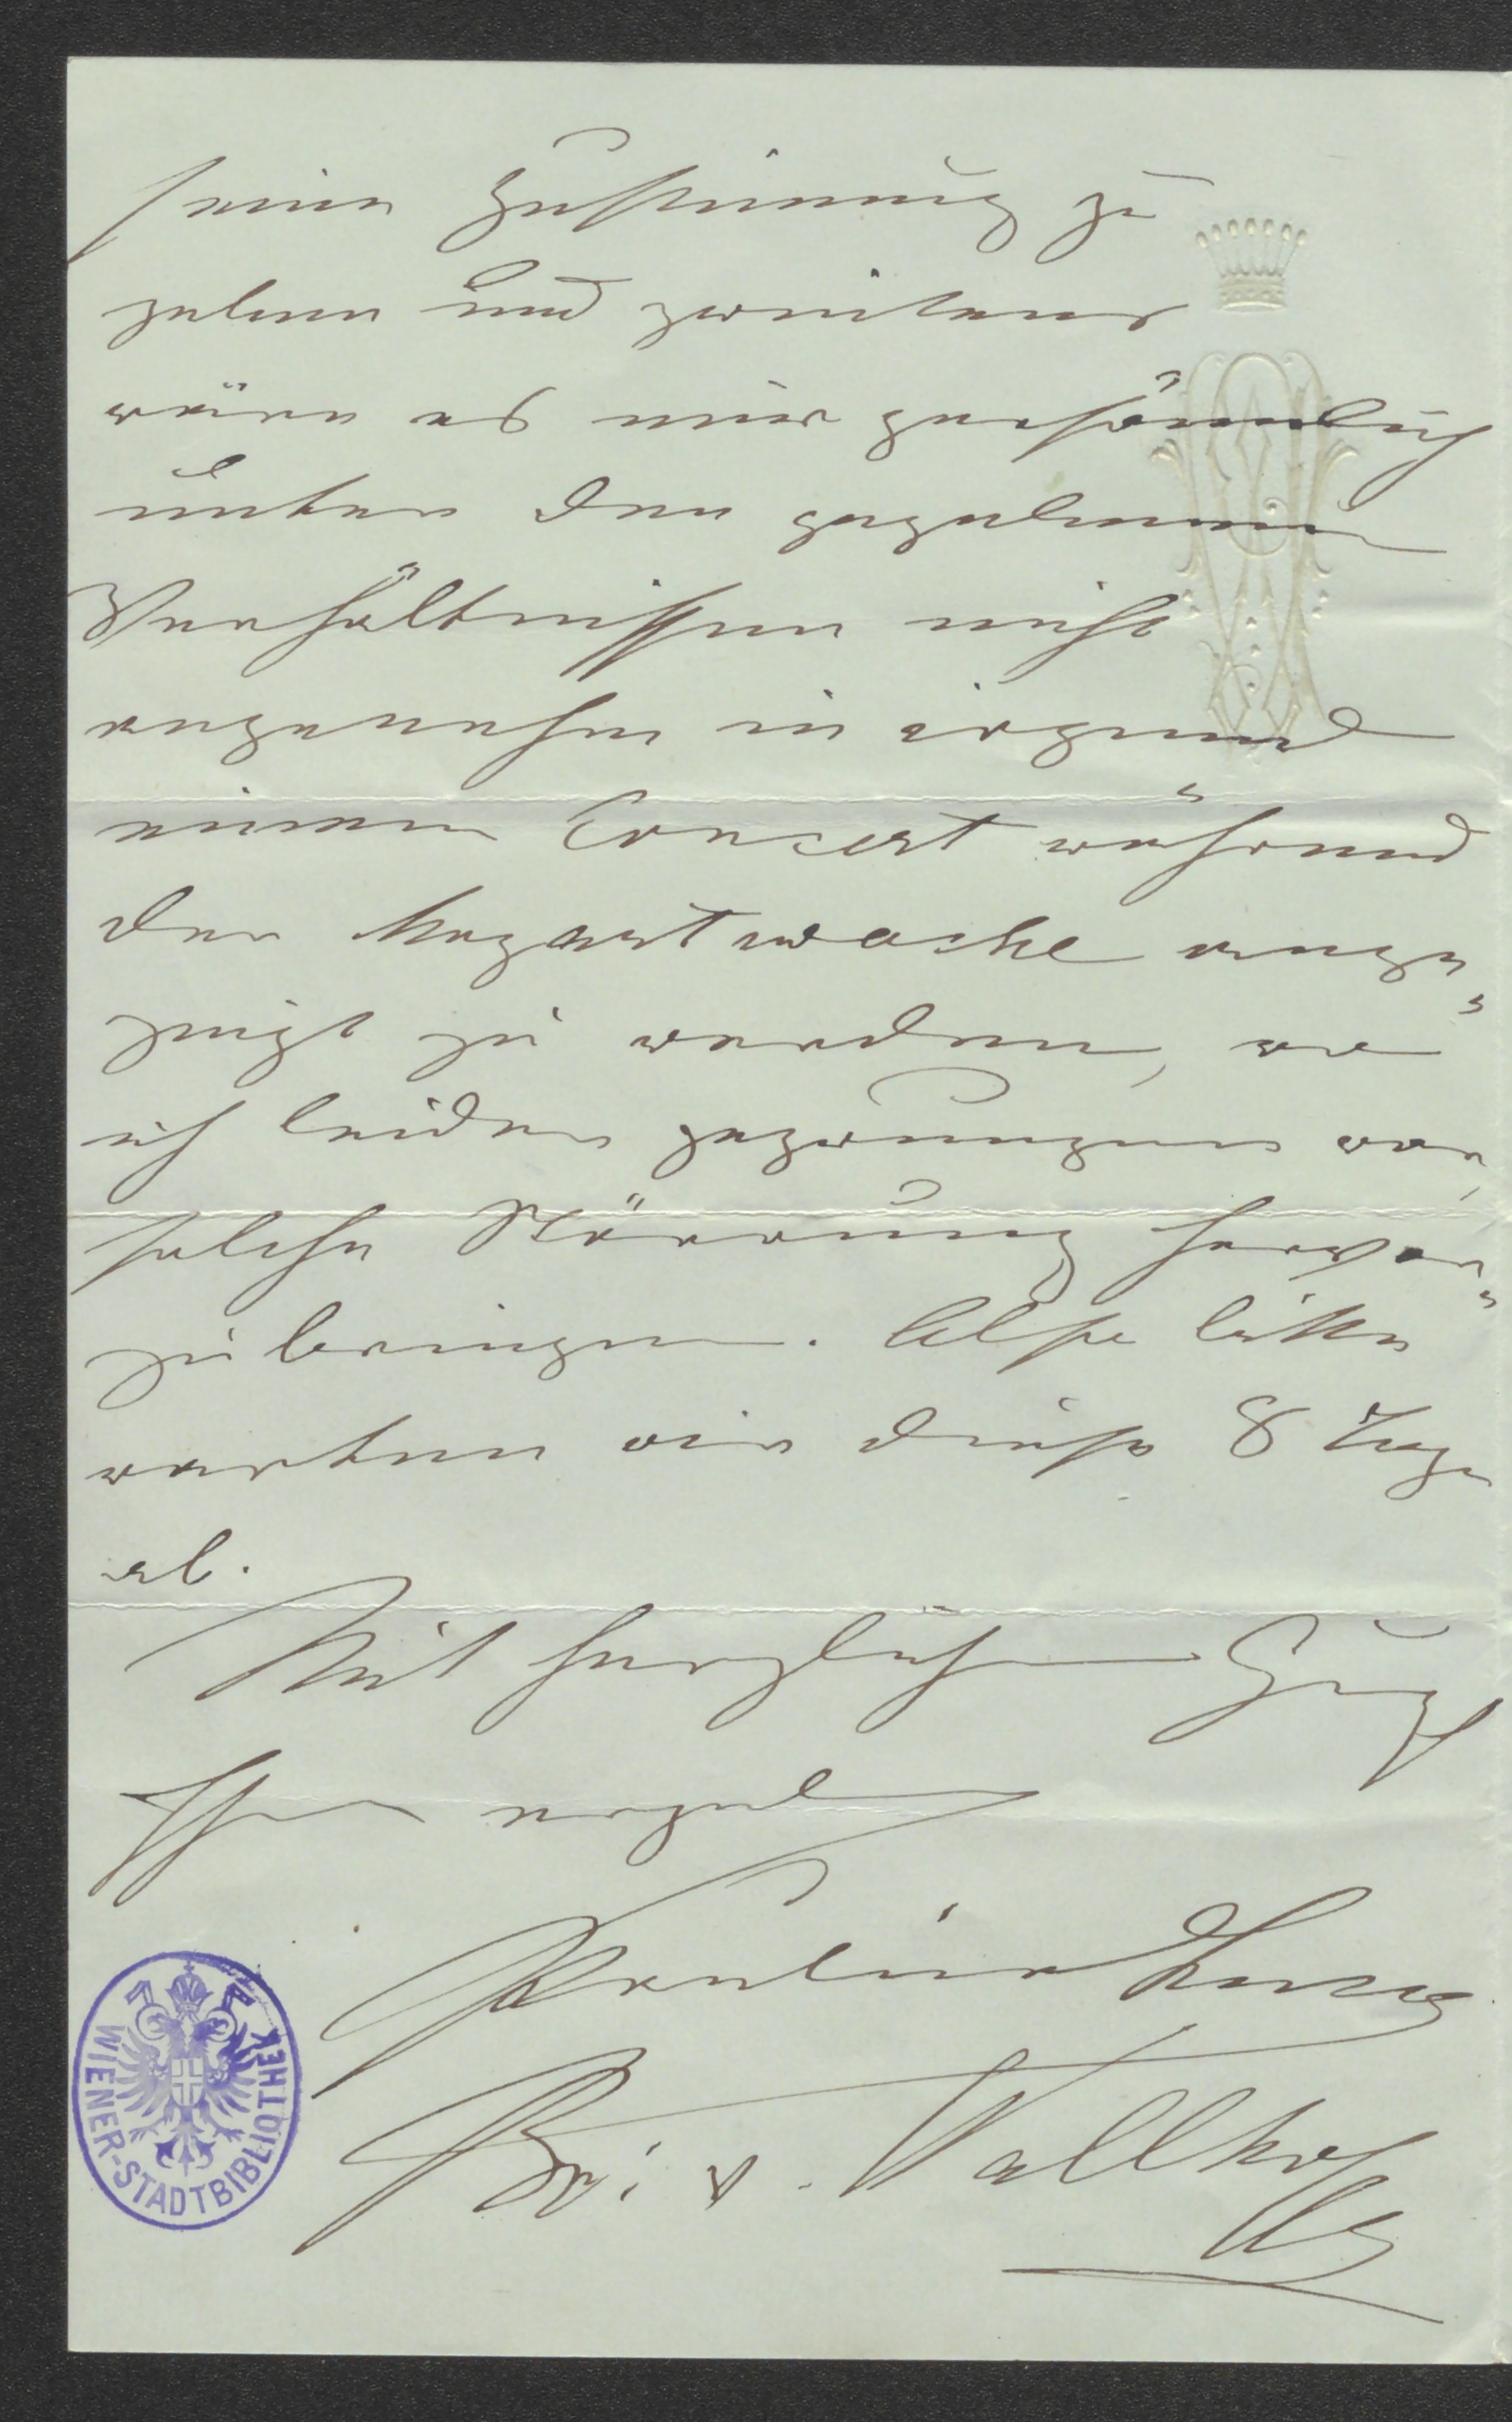 seine Zustimmung zu
geben und zweitens
wäre es mir persönnlich
unter den gegebenen
Verhältnissen nicht
angenehm in irgend
einem Concert während
der Mozartwoche ange"
zeigt zu werden, wo
ich leider gezwungen war,
solche Störrung hervor"
zu bringen. Also bitte
warten wir diese 8 Tage
ab.
Mit herzlichem Gruß
Ihre ergeb
Pauline Lucca
v. Wallhofen
WIENER-STADTBIBLIOTHEK